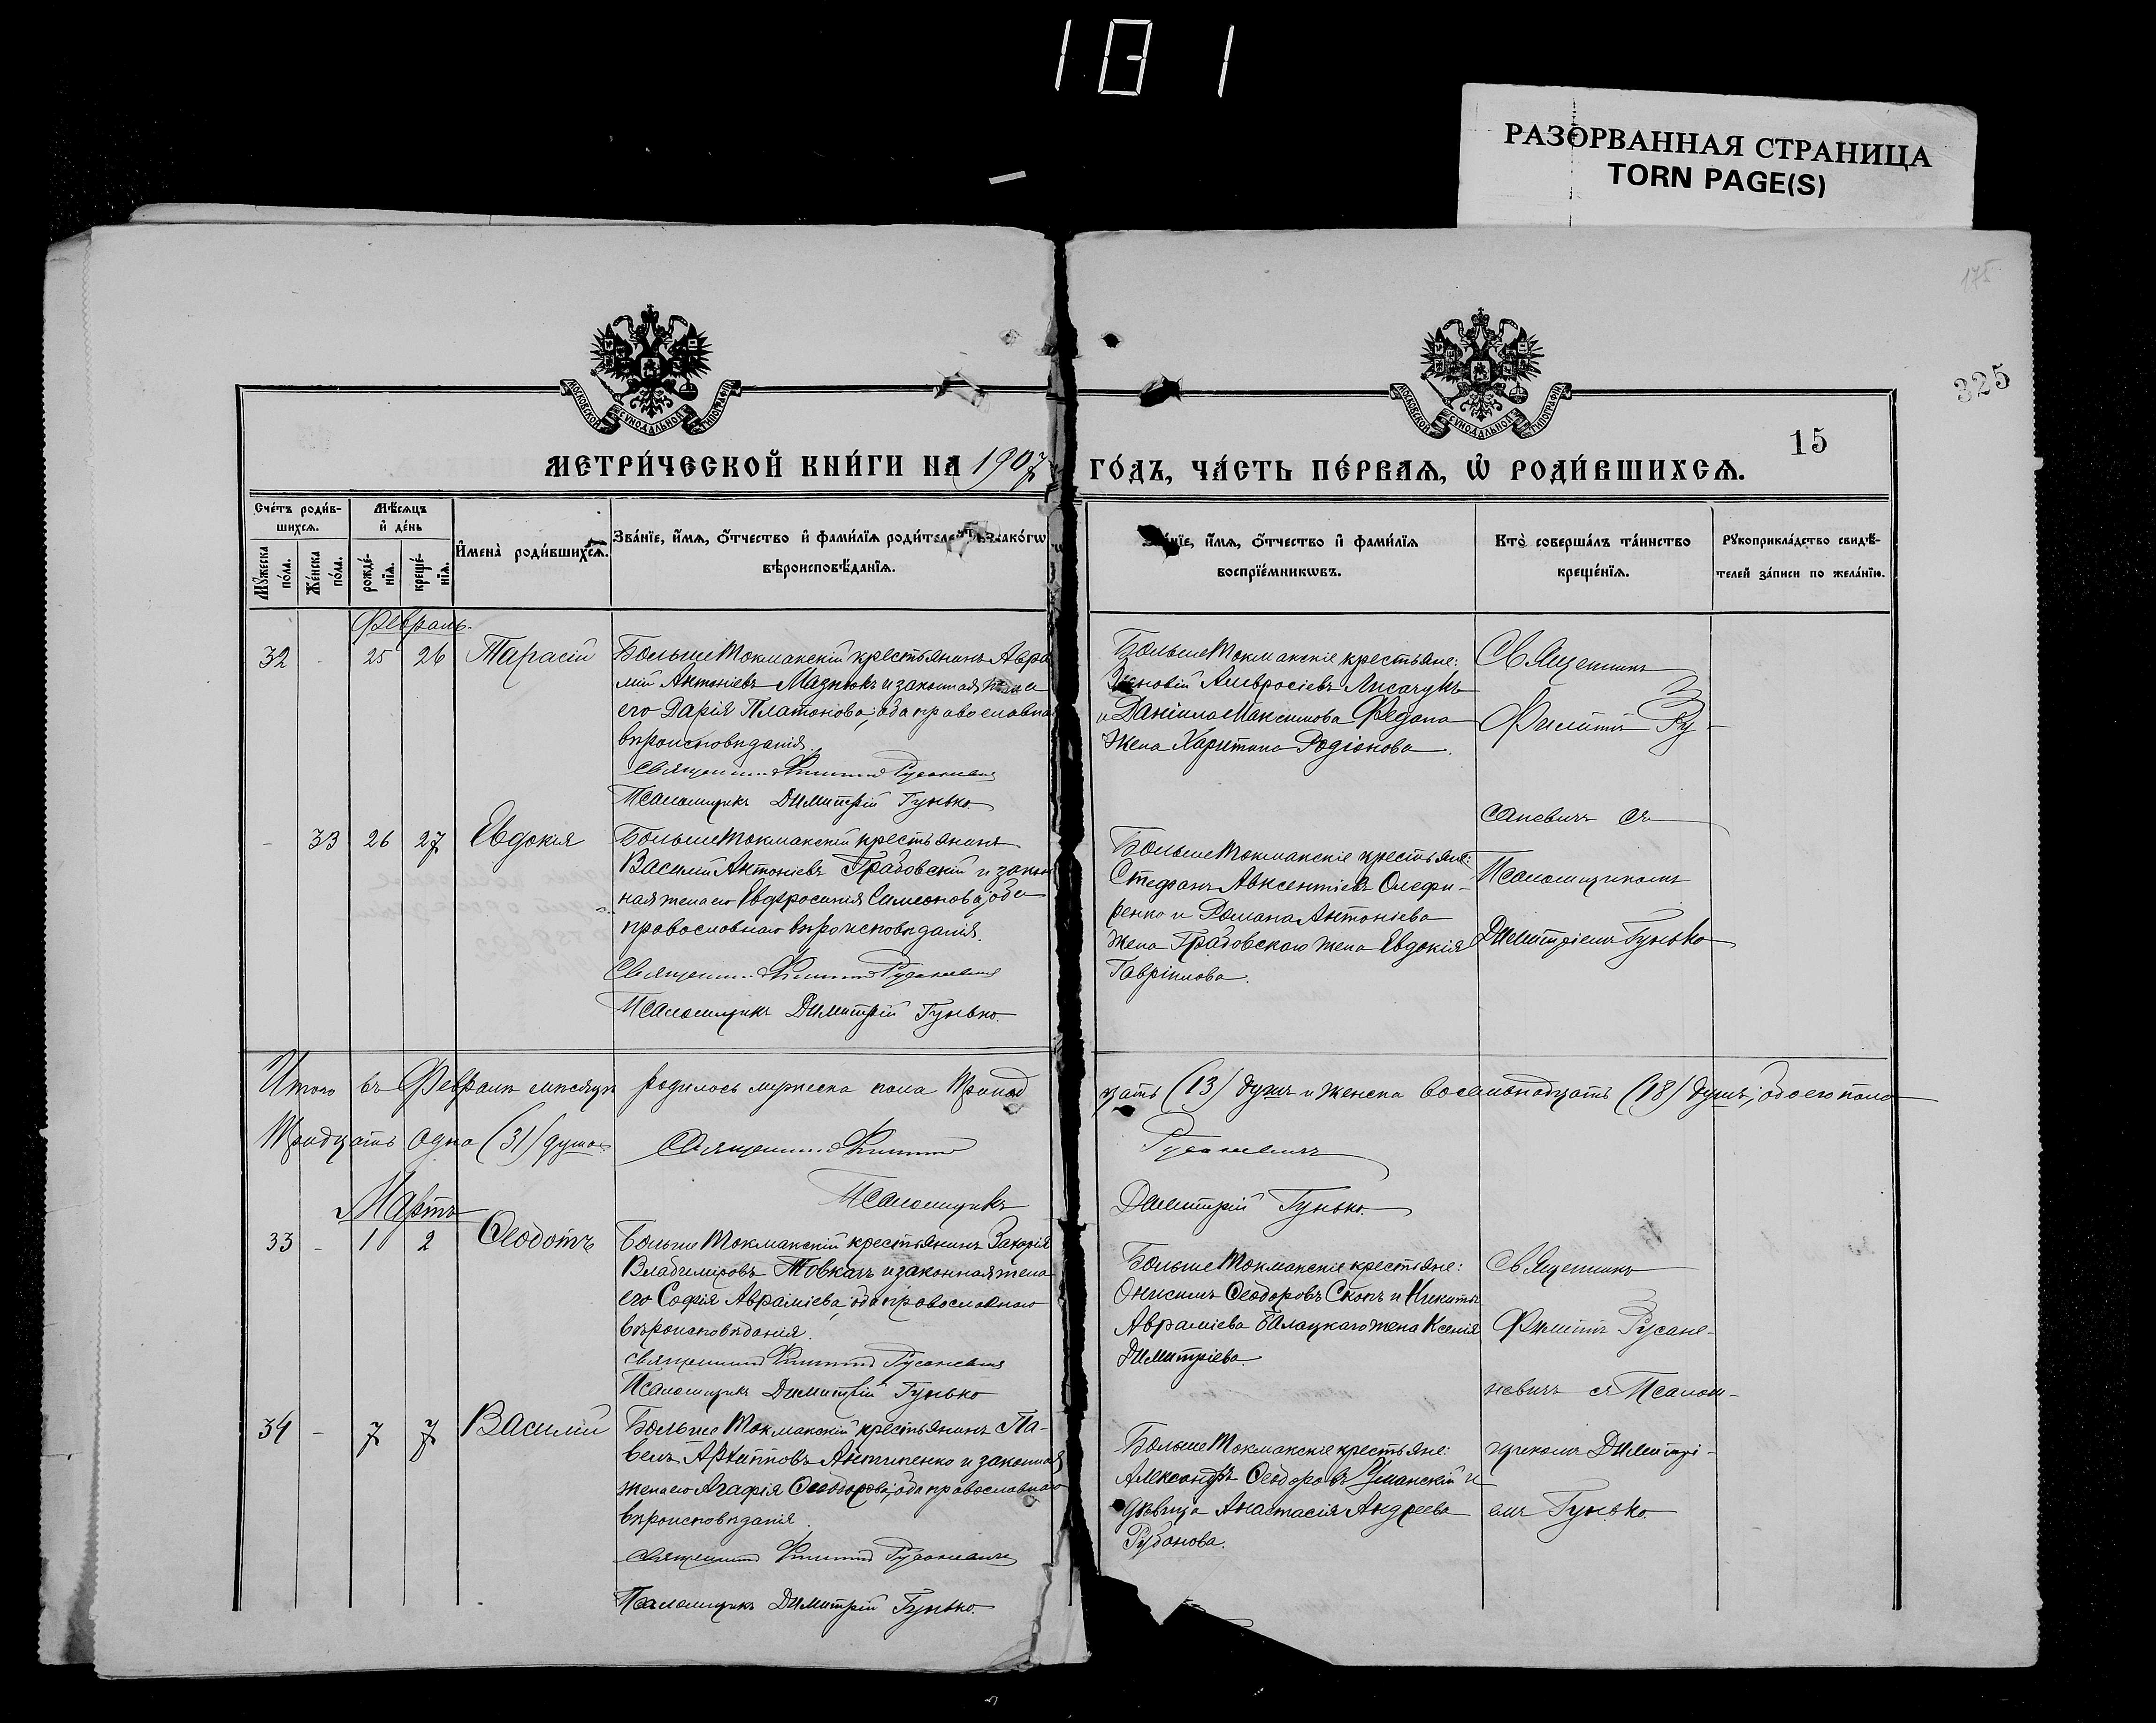 181
РАЗОРВАННАЯ СТРАНИЦА
TORN PAGE(S)
175
325
МОСКОВСКОЙ СѴНОДАЛЬНОЙ ТИПОГРАФІИ
МОСКОВСКОЙ СѴНОДАЛЬНОЙ ТИПОГРАФІИ
15
МЕТРИ́ЧЕСКОЙ КНИ́ГИ НА 1907 ГО́ДЪ, ЧА́СТЬ ПЕ́РВАѦ, Ѡ҆ РОДИ́ВШИХСѦ.
Сче́тъ роди́в-
шихсѧ.
Мꙋ́жеска по́ла.
Же́нска по́ла.
Мѣ́сѧцъ
и҆ де́нь
рожде́-
нїѧ.
креще́-
нїѧ.
И҆мена̀ роди́вшихсѧ.
Зва́нїе, и҆́мѧ, ѻ҆́тчество и҆ фами́лїѧ роди́телей, и҆ како́гѡ
вѣроисповѣ́данїѧ.
Зва́нїе, и҆́мѧ, ѻ҆́тчество и҆ фами́лїѧ
воспрїе́мникѡвъ.
Кто̀ соверша́лъ та́инство
креще́нїѧ.
Рꙋкоприкла́дство свидѣ́-
телей за́писи по жела́нїю.
Февраль.
32 - 25 26 Тарасій
БольшеТокмакскій крестьянинъ Авра
мій Антоніевъ Мазнюкъ и законная жена
его Дарія Платонова, оба православна
вѣроисповѣданія.
Священникъ Филиппъ Русаневичъ
Псаломщикъ Димитрій Гунько.
БольшеТокмакскіе крестьяне:
Зиновій Амвросіевъ Лисачукъ
и Даніила Максимова Федана
жена Харитина Родіонова.
Священникъ
Филиппъ Ру-
саневичъ съ
Псаломщикомъ
Димитріемъ Гунько
- 33 26 27 Евдокія
БольшеТокмакскій крестьянинъ
Василій Антоніевъ Грабовскій и закон
ная жена его Евфросинія Симеонова, оба
православнаго вѣроисповѣданія.
Священникъ Филиппъ Русаневичъ
Псаломщикъ Димитрій Гунько.
БольшеТокмакскіе крестьяне:
Стефанъ Авксентіевъ Олефи-
ренко и Романа Антоніева
жена Грабовскаго жена Евдокія
Гавріилова.
Итого въ Февралѣ мѣсяцѣ родилось мужеска пола тринад
цать (13) душъ и женска восемьнадцать (18) душъ, обоего пола
тридцать одна (31) душа
Священникъ Филиппъ Русаневичъ
Псаломщикъ Димитрій Гунько.
Мартъ
33 - 1 2 Ѳеодотъ
БольшеТокмакскій крестьянинъ Захарія
Владиміровъ Товкачъ и законная жена
его Софія Авраміева, оба православнаго
вѣроисповѣданія.
Священникъ Филиппъ Русаневичъ
Псаломщикъ Димитрій Гунько
БольшеТокмакскіе крестьяне:
Онисимъ Ѳеодоровъ Скокъ и Никиты
Авраміева Балацкаго жена Ксенія
Димитріева.
Священникъ
Филиппъ Русане-
невичъ съ Псалом-
щикомъ Димитрі-
емъ Гунько.
34 - 7 7 Василій
БольшеТокмакскій крестьянинъ Па-
велъ Архипповъ Антипенко и законная
жена его Агафія Ѳеодорова, оба православнаго
вѣроисповѣданія.
Священникъ Филиппъ Русаневичъ
Псаломщикъ Димитрій Гунько.
БольшеТокмакскіе крестьяне:
Александръ Ѳеодоровъ Уманскій и
дѣвица Анастасія Андреева
Рубанова.